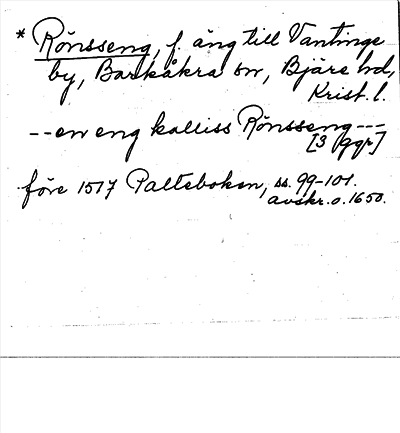 * Rönsseng, f. äng till Vantinge
by, Barkåkra sn, Bjäre hd,
Krist. l.
-- en eng kalliss Rönsseng ---
[3 ggr]
före 1517 Paltebokon, ss. 99-101.
avskr. o. 1650.